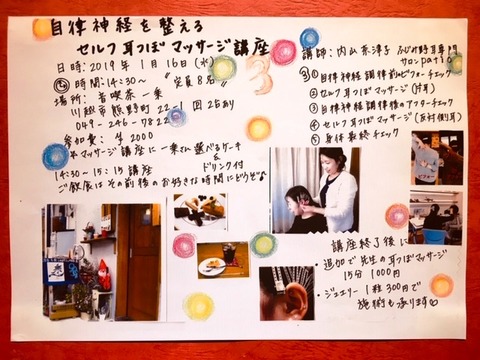 自律神経を整える
セルフ耳つぼマッサージ講座
日時: 2019年 1月16日(水)
時間: 14:30~ "定員8名"
場所: 音喫茶 一乗
川越市熊野町 22-1
049-246-7822
参加費: ¥2000
*マッサージ講座に一乗さん選べるケーキ
&
ドリンク付
14:30~15:15 講座
ご飲食はその前後のお好きな時間にどうぞ♪
3
講師: 内山 奈津子 ふじみ野耳専門
サロン patio
③
① 自律神経調律前ビフォーチェック
② セルフ耳つぼマッサージ(片耳)
③ 自律神経調律後のアフターチェック
④ セルフ耳つぼマッサージ(反対側耳)
⑤ 身体最終チェック
講座終了後に
・追加で先生の耳つぼマッサージ
15分 1000円
・ジュエリー 1粒 300円で
施術も承ります♡